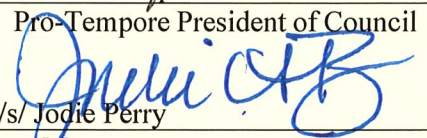 Pro-Tempore President of Council
/s/ Jodie Perry